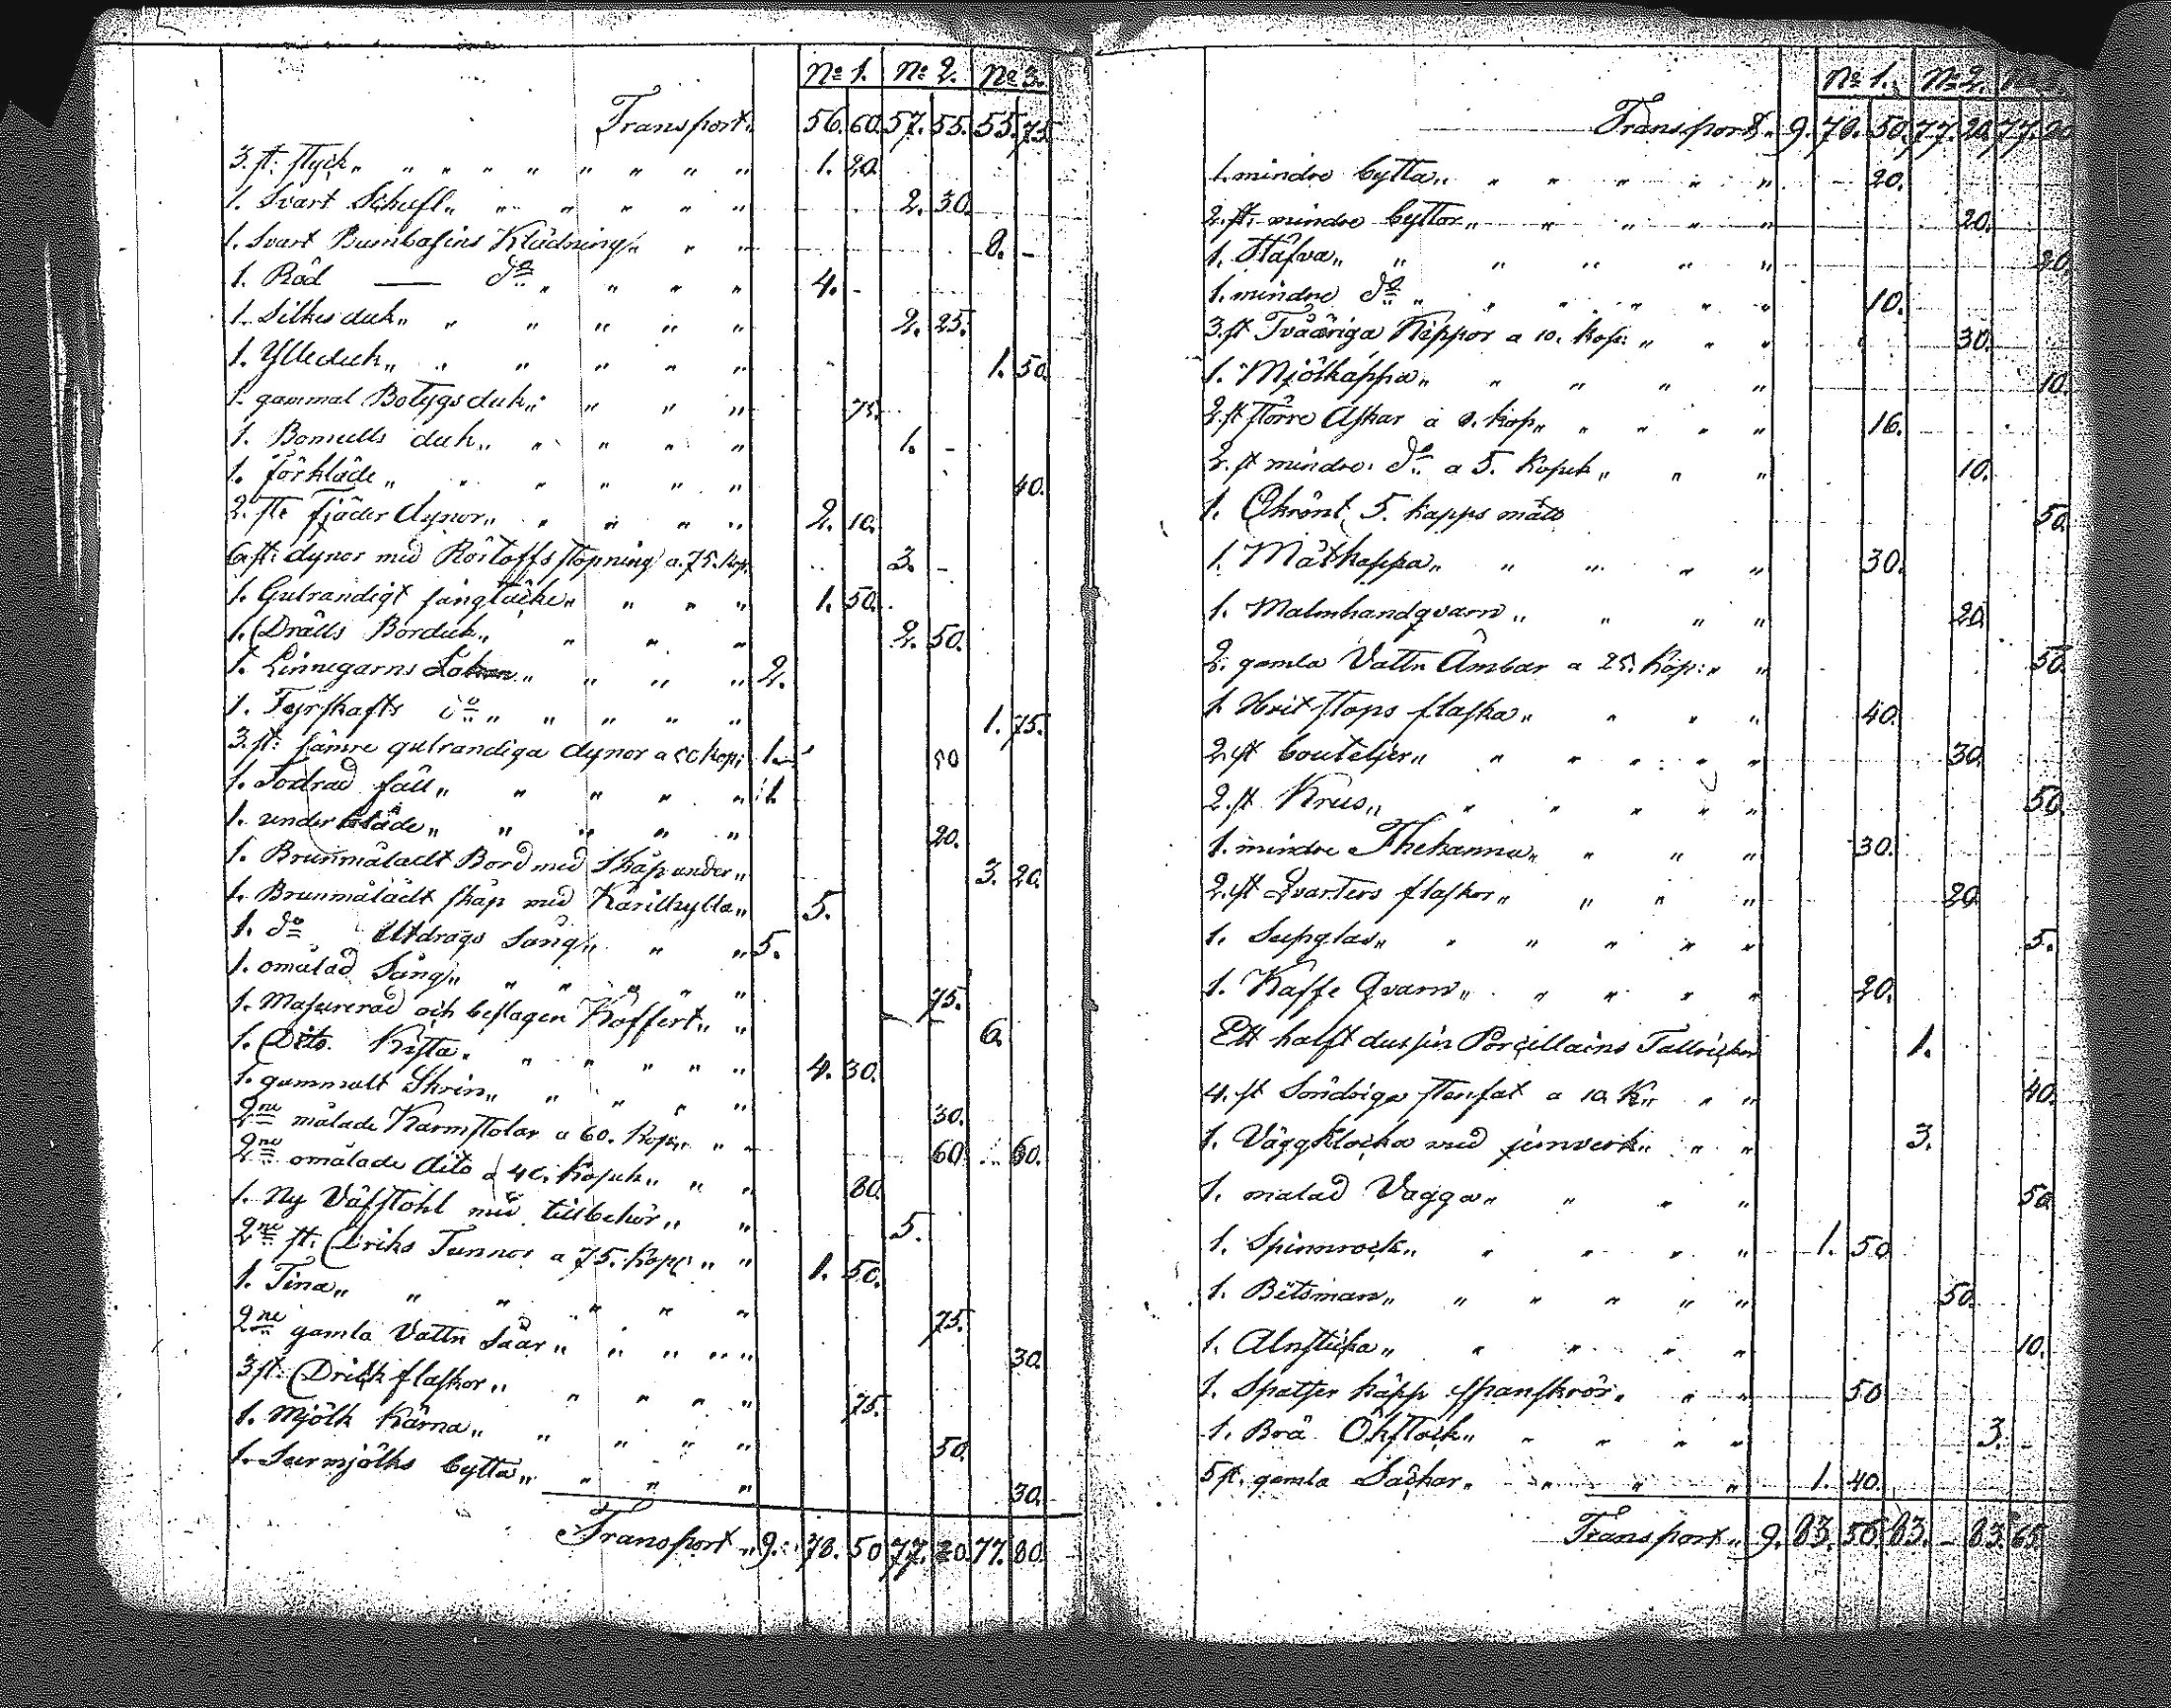 No 1. No 2. No 3.
Transport. 56. 60. 57. 55. 55. 75.
3. st: styck 1. 20.
1. Svart Schufl 2. 30.
1. Svart Bumbasins Klädning 8. -
1. Röd — do 4. -
1. Silkes duk 2. 25.
1. Ylleduk 1. 50.
1. gammal Botygs duk 75.
1. Bomulls duk 1. -
1. förkläde 40.
2. st. fjäder dynor 2. 10.
6. st: dynor med stopning a. 75. kop. 3. -
1. Gulrandigt sängtäcke 1. 50.
1. Drälls Borduk 2. 50.
1. Linnegarns Lakan 2.
1. Fyrskafts do 1. 75.
3. st: sämre gulrandiga dynor a kop: 1. 50
1. Fodrad fäll 1.
1. underkläde 20.
1. Brunmåladt Bord med skåp under 3. 20.
1. Brunmåladt skåp med Kärilhylla 5.
1. do Utdrags Säng 5.
1. omålad Säng 75.
1. Masurerad och beslagen Koffert 6.
1. Dito. Kista. 4. 30.
1. gammalt Skrin 30.
2ne målade Karmstolar a 60. Kop: 60. 60.
2ne omålade dito a 40. Kopek 80.
1. Ny Väfstohl med tillbehör 5.
2ne st. Driks Tunnor a 75. Kop: 1. 50.
1. Tina 75.
2ne gamla Vattn Såar 30.
3 st: Drick flaskor 75.
1. Mjölk Kärna 50.
1. Surmjölks bytta 30.
Transport 9. 78. 50 77. 20. 77. 80.
No 1. No 2. No
Transport 9. 78. 50. 77. 20. 77.
1. mindre bytta 20.
2. st. mindre byttor 20.
1. Stäfva 20.
1. mindre do 10.
3. st Tvååriga Käppor a 10. kop: 30.
1. Mjölkappa 10.
2. st större Askar a 8. kop 16.
2. st mindre do a 5. Kopek 10.
1. Okrönt 5. kapps mått 50.
1. Matkappa 30.
1. Malmhandqvarn 20.
2. gamla Vattn Ämbar a 25. Kop: 50.
1. Hvit stops flaska 40.
2. st bouteljer 30.
2. st Krus 50.
1. mindre Thekanna 30.
2. st Qvarters flaskor 20
1. Supglas 5.
1. Kaffe Qvarn 20.
Ett halft dussin Porcillains Tallrickor 1.
4. st Söndriga stenfat a 10. K. 40.
1. Väggklocka med jernverk 3.
1. målad Vagga 50
1. Spinnrock 1. 50
1. Bitsman 50.
1. Alnsticka 10.
1. Spatser käpp spanskrör. 50
1. Brå Ökstock 3.
5 st. gamla Säckar. 1. 40.
Transport 9. 83. 56. 83. - 83. 65.